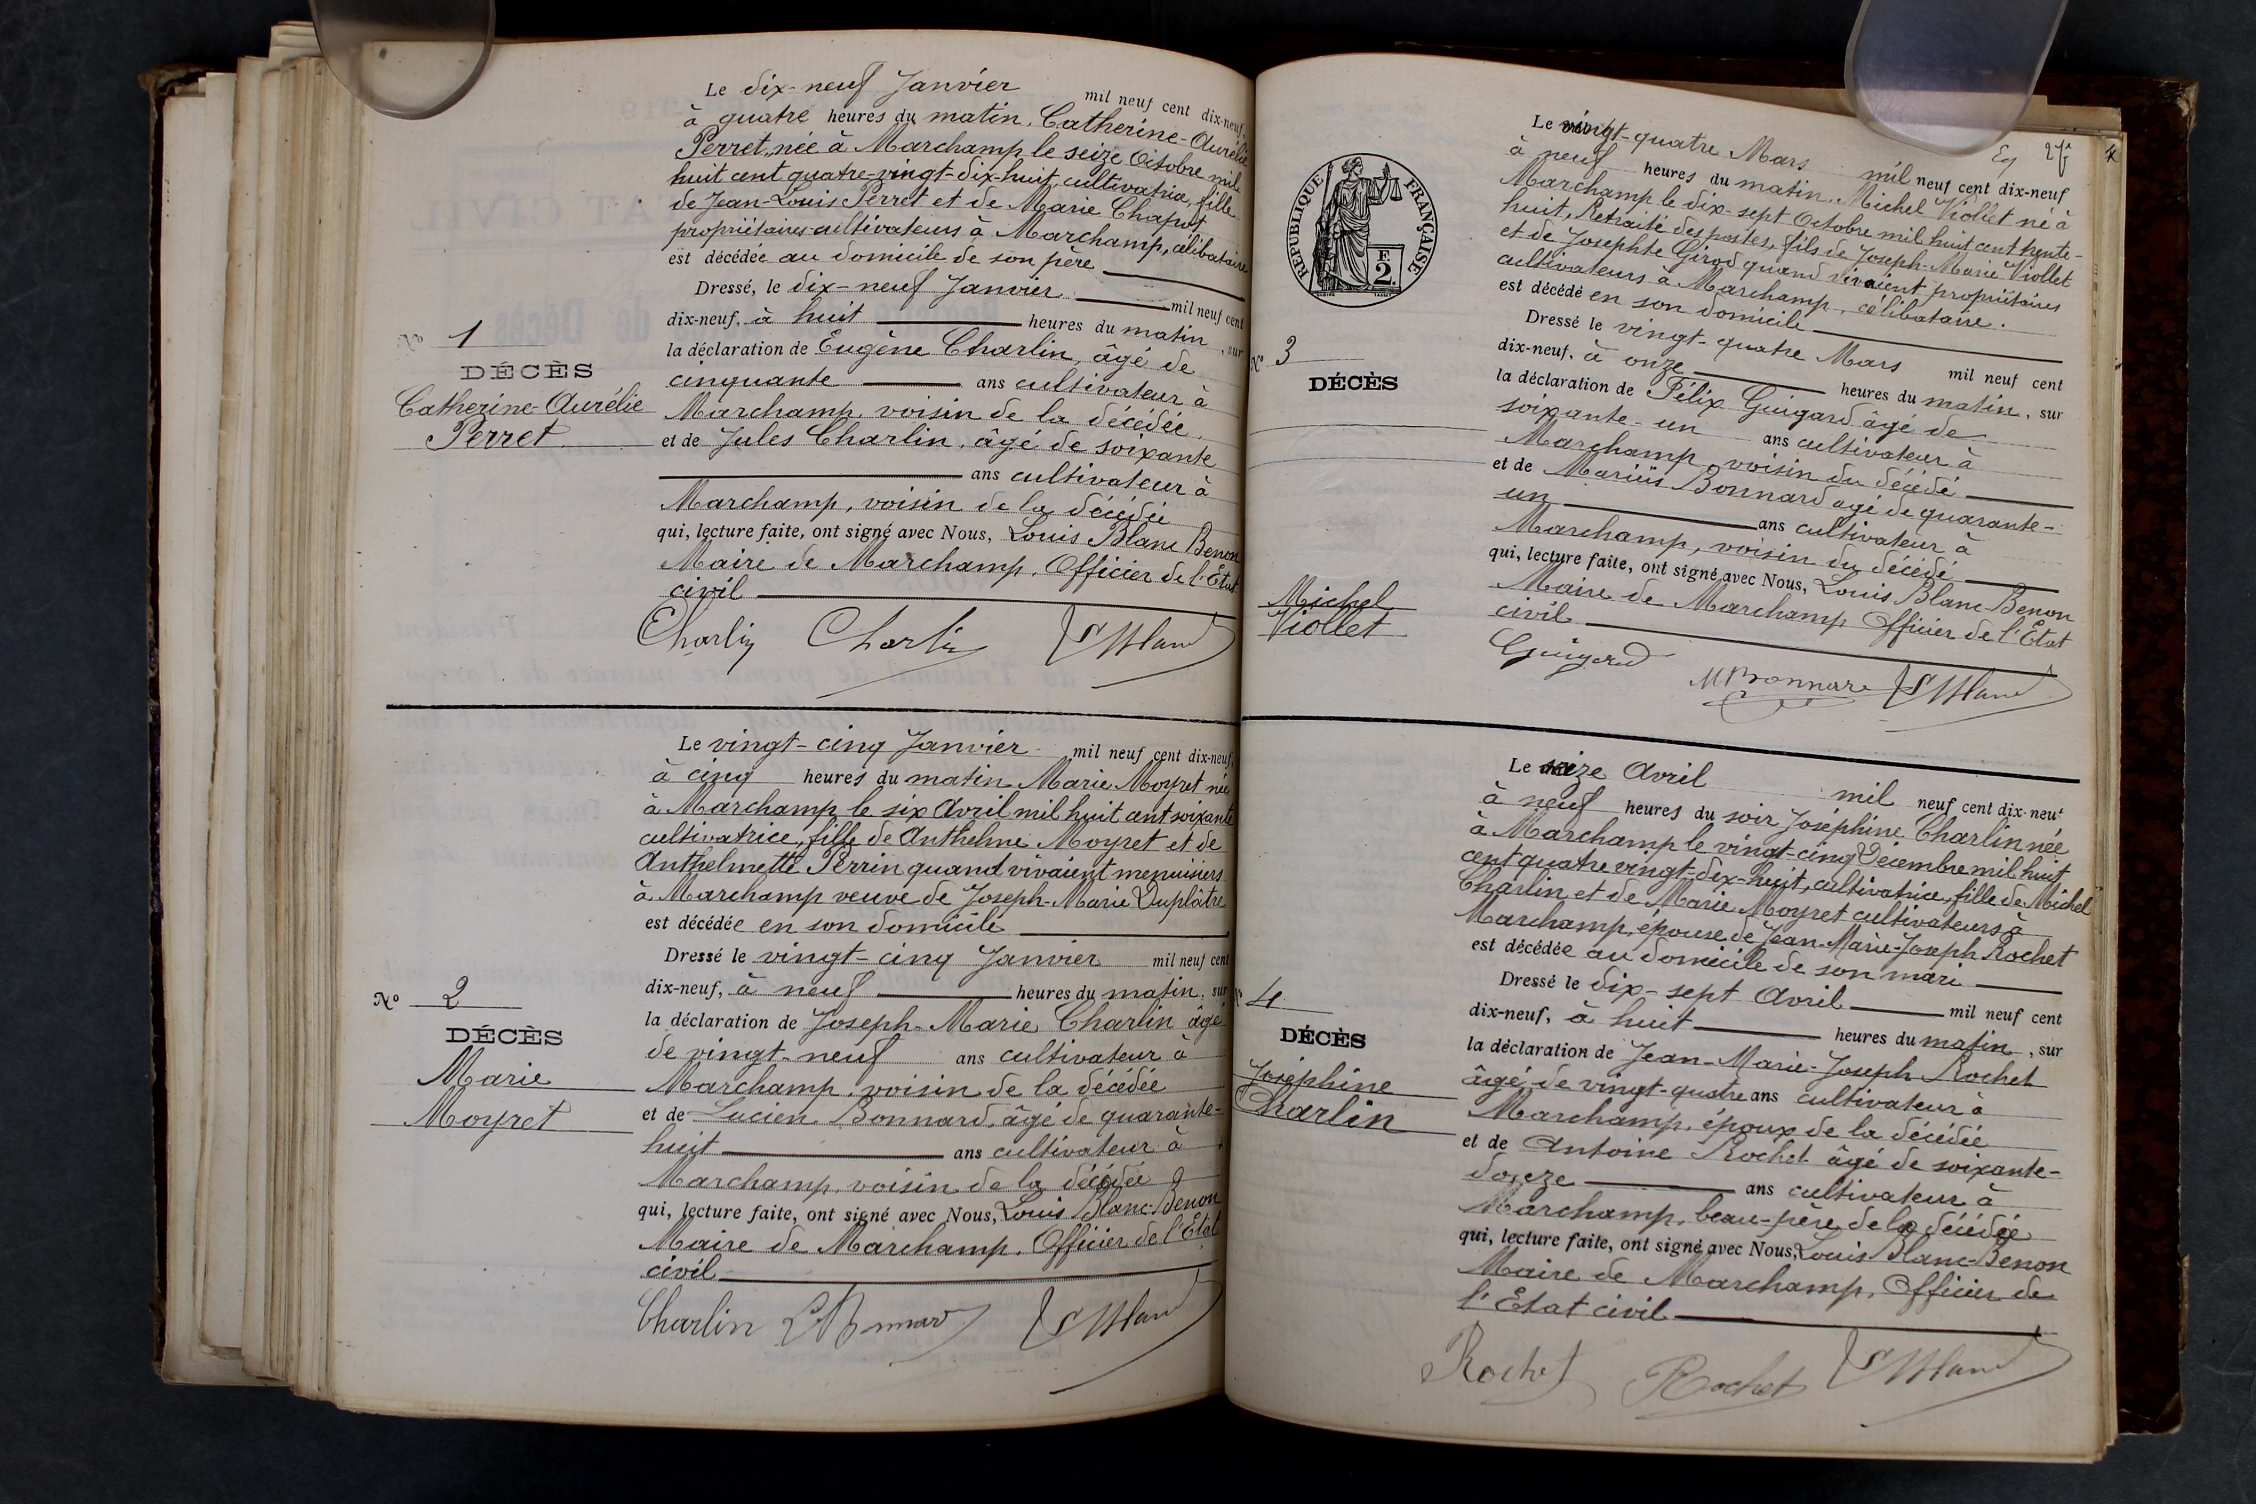 Le dix-neuf Janvier mil neuf cent dix-neuf,
à quatre heures du matin, Catherine-Aurélie
Perret, née à Marchamp le seize Octobre mil
huit cent quatre-vingt-dix-huit, cultivatrice, fille
de Jean-Louis Perret et de Marie Chapot
propriétaires-cultivateurs à Marchamp, célibataire
est décédée au domicile de son père
Dressé, le dix-neuf Janvier mil neuf cent
dix-neuf, à huit heures du matin, sur
la déclaration de Eugène Charlin, âgé de
cinquante ans cultivateur à
Marchamp, voisin de la décédée,
et de Jules Charlin, âgé de soixante
ans cultivateur à
Marchamp, voisin de la décédée
qui, lecture faite, ont signé avec Nous, Louis Blanc Benon
Maire de Marchamp, Officier de l'État
civil
Charlin Charlin Blanc
No 1
DÉCÈS
Catherine-Aurélie
Perret
Le vingt-cinq Janvier mil neuf cent dix-neuf,
à cinq heures du matin Marie Moyret née
à Marchamp le six Avril mil huit cent soixante
cultivatrice, fille de Anthelme Moyret et de
Anthelmette Perrin quand vivaient menuisiers
à Marchamp veuve de Joseph-Marie Duplâtre
est décédée en son domicile
Dressé le vingt-cinq Janvier mil neuf cent
dix-neuf, à neuf heures du matin, sur
la déclaration de Joseph-Marie Charlin âgé
de vingt-neuf ans cultivateur à
Marchamp, voisin de la décédée
et de Lucien Bonnard, âgé de quarante-
huit ans cultivateur à
Marchamp, voisin de la décédée
qui, lecture faite, ont signé avec Nous, Louis Blanc-Benon
Maire de Marchamp, Officier de l'État
civil
Charlin L Bonnard Blanc
No 2
DÉCÈS
Marie
Moyret
4
RÉPUBLIQUE FRANÇAISE
F. 2.
Le vingt-quatre Mars mil neuf cent dix-neuf
à neuf heures du matin, Michel Viollet né à
Marchamp le dix-sept Octobre mil huit cent trente-
huit, Retraité des postes, fils de Joseph-Marie Viollet
et de Josephte Girod quand vivaient propriétaires
cultivateurs à Marchamp, célibataire.
est décédé en son domicile
Dressé le vingt-quatre Mars mil neuf cent
dix-neuf, à onze heures du matin, sur
la déclaration de Félix Guigard âgé de
soixante-un ans cultivateur à
Marchamp, voisin du décédé
et de Mariüs Bonnard agé de quarante-
un ans cultivateur à
Marchamp, voisin du décédé
qui, lecture faite, ont signé avec Nous, Louis Blanc-Benon
Maire de Marchamp Officier de l'État
civil
Guigard M Bonnard Blanc
No 3
DÉCÈS
Michel
Viollet
Le seize Avril mil neuf cent dix-neuf
à neuf heures du soir Josephine Charlin née
à Marchamp le vingt-cinq Décembre mil huit
cent quatre vingt-dix-huit, cultivatrice, fille de Michel
Charlin et de Marie Moyret cultivateurs à
Marchamp, épouse de Jean-Marie-Joseph Rochet
est décédée au domicile de son mari
Dressé le dix-sept Avril mil neuf cent
dix-neuf, à huit heures du matin, sur
la déclaration de Jean-Marie-Joseph Rochet
âgé de vingt-quatre ans cultivateur à
Marchamp, époux de la décédée
et de Antoine Rochet âgé de soixante-
douze ans cultivateur à
Marchamp, beau-père de la décédée
qui, lecture faite, ont signé avec Nous, Louis Blanc-Benon
Maire de Marchamp, Officier de
l'État civil
Rochet Rochet Blanc
No 4
DÉCÈS
Joséphine
Charlin